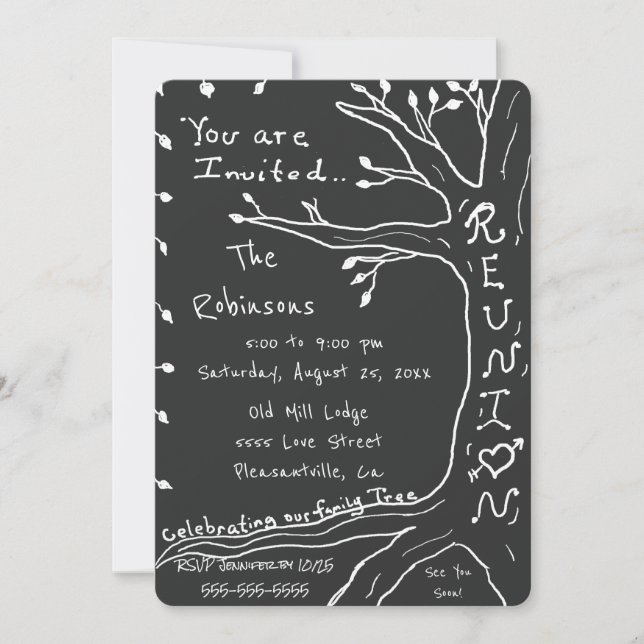 You are
Invited..
The
Robinsons
5:00 to 9:00 pm
Saturday, August 25, 20xx
Old Mill Lodge
5555 Love Street
Pleasantville, Ca
Celebrating our family Tree
RSVP Jennifer by 10/25
555-555-5555
REUNION
See You
Soon!